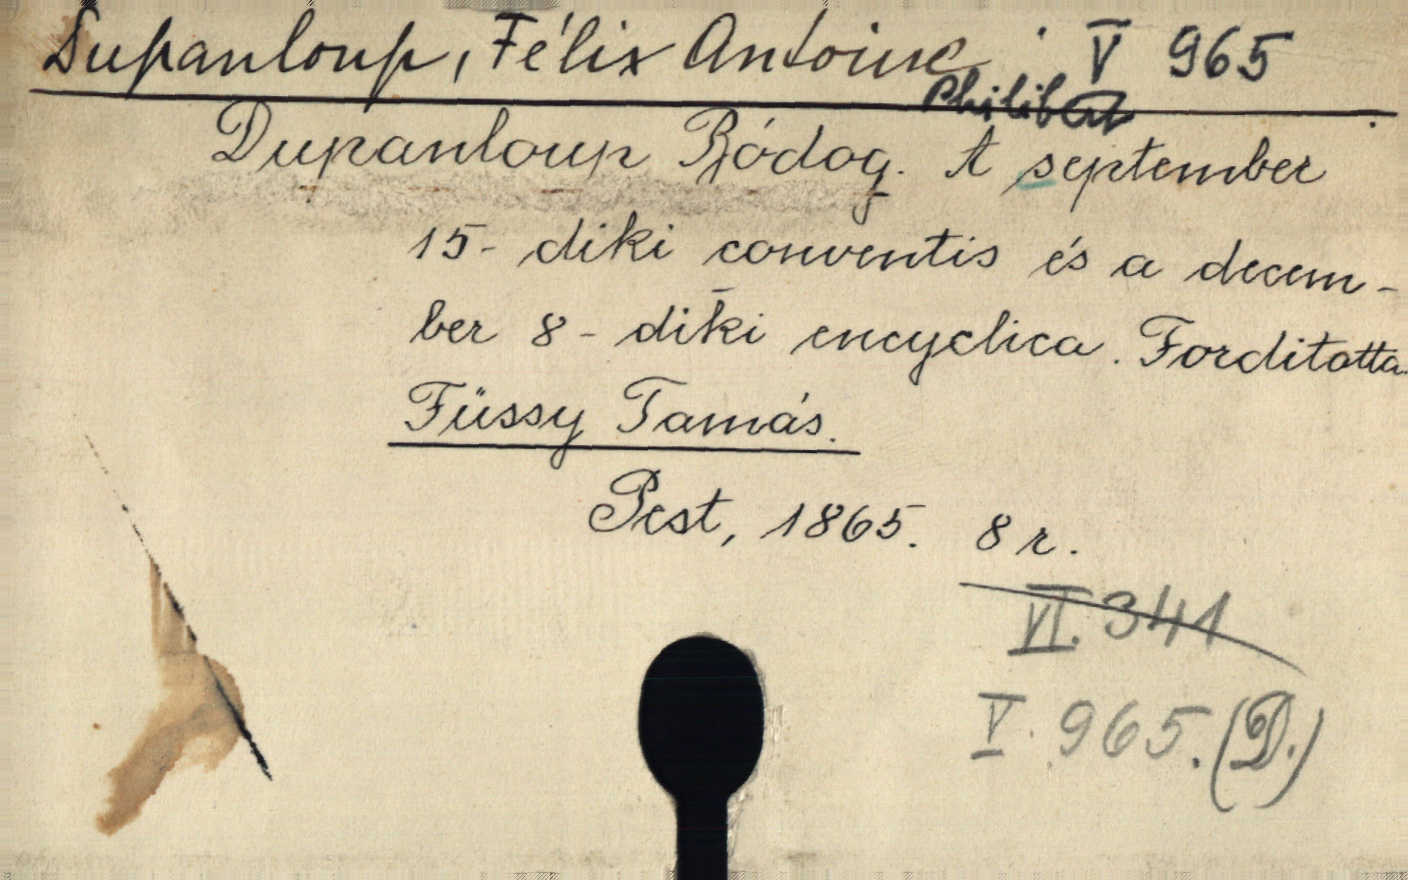 Dupanloup, Félix Antoine V 965
Philibert
Dupanloup Bódog. A september
15-diki conventis és a decem-
ber 8-diki encyclica. Forditotta
Füssy Tamás.
Pest, 1865. 8 r.
VI. 341
V. 965. (D.)